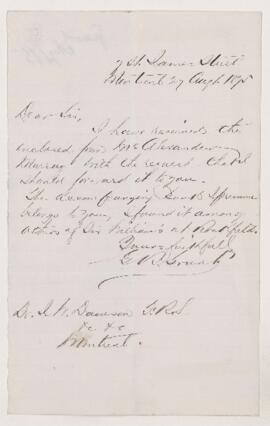 St. James Street
Montreal 27 Augt 1875
Dear Sir,
I have received the
enclosed from Mrs Alexander
Murray with the request that I
should forward it to you.
The accompanying Book I presume
belongs to you, I found it among
others of Sir William's at
Yours faithfully
Dr. J. W. Dawson F.R.S.
&c &c
Montreal.